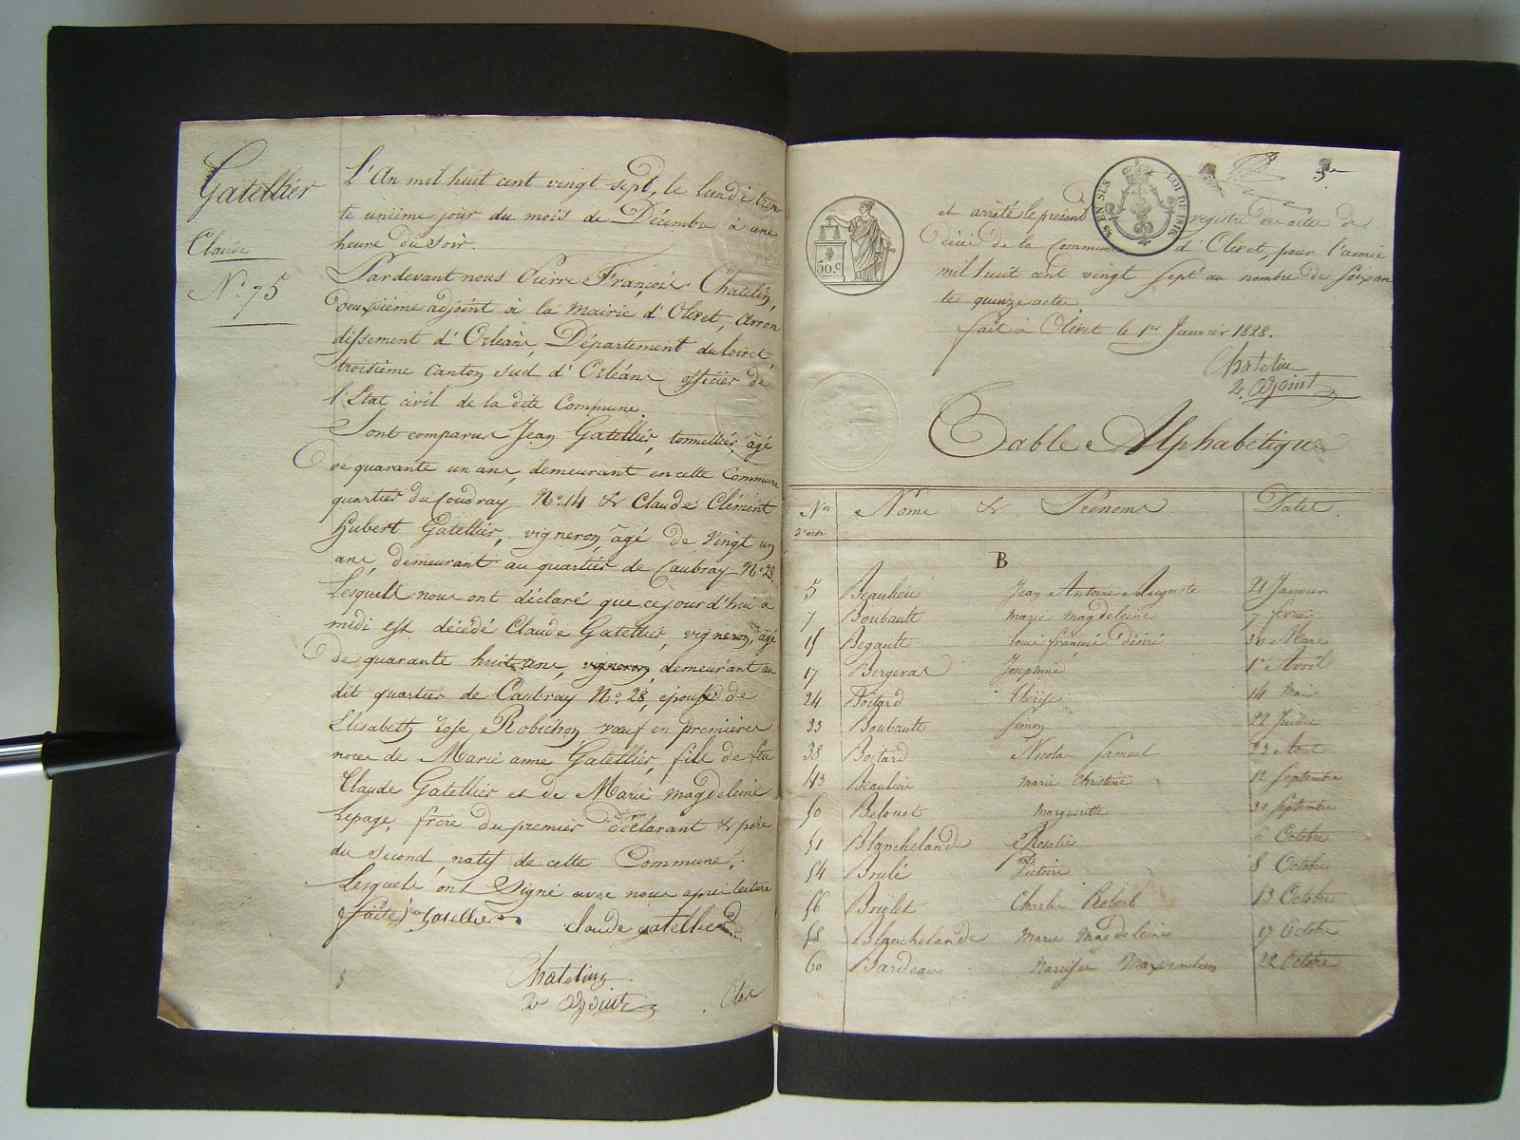 Gatellier
Claude
N.° 75
L'An mil huit cent vingt sept, le lundi tren
te unième jour du mois de Décembre à une
heure du soir.
Pardevant nous Pierre François Chatelin,
deuxième adjoint à la Mairie d'Olivet, Arron
dissement d'Orléans, Département du Loiret,
troisième canton sud d'Orléans officier de
l'Etat civil de la dite Commune.
Sont comparus Jean Gatellier, tonnellier, âgé
de quarante un ans, demeurant en cette Commune
quartier du Coudray, N.° 14 & Claude Clément
Hubert Gatellier, vigneron, âgé de vingt un
ans, demeurant au quartier de Caubray N.° 28.
Lesquels nous ont déclaré que cejourd'hui à
midi est décédé Claude Gatellier, vigneron, âgé
de quarante huit ans, vigneron, demeurant au
dit quartier de Caubray N.° 28, epoux de
Elisabeth Robichon veuf en premières
noces de Marie anne Gatellier, fils de feu
Claude Gatellier et de Marie Magdeleine
Lepage, frère du premier déclarant & père
du second, natif de cette Commune.
Lesquels ont signé avec nous après lecture
faite j gatellier Claude gatellier
Chatelin
adjoint
Clos
et arrêté le présent registre des actes de
décès de la Commune d'Olivet, pour l'année
mil huit cent vingt sept au nombre de soixan
te quinze actes
fait à Olivet le 1er Janvier 1828.
Chatelin
adjoint
50 C
EN SUS
LOI DE 1816
Table Alphabétique
Nos Noms & Prénoms Dates
B
5 Beaulieu Jean Antoine Auguste 21 Janvier
7 Boubault Marie Magdeleine 7 février
15 Begault Louis françois désiré 30 Mars
17 Bergerat Josephine 1er Avril
24 Boitard 14 Mai
33 Boubault Simon 22 Juillet
38 Boitard Nicolas Samuel 22 Aout
43 Beaulieu Marie Christine 12 Septembre
50 Belouet Marguerite 30 Septembre
51 Blanchelande Rosalie 6 Octobre
54 Brulé Victoire 8 Octobre
56 Briolet Charles Robert 13 Octobre
58 Blanchelande Marie Magdeleine 17 Octobre
60 Bardeau Narcisse Maximilien 22 Octobre